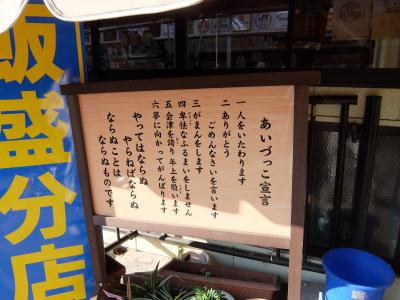 あいづっこ宣言
一 人をいたわります
二 ありがとう
ごめんなさいを言います
三 がまんをします
四 卑怯なふるまいをしません
五 会津を誇り 年上を敬います
六 夢に向かってがんばります
やってはならぬ
やらねばならぬ
ならぬことは
ならぬものです
飯盛分店